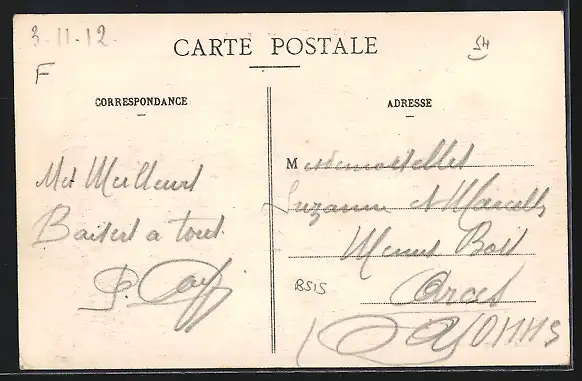 3-11-12.
F
CARTE POSTALE
54
CORRESPONDANCE
ADRESSE
Mes Meilleurs
Baisers a tous
Mesdemoiselles
Suzanne et Marcelle
Menus Bois
BS15
Arces
Yonne